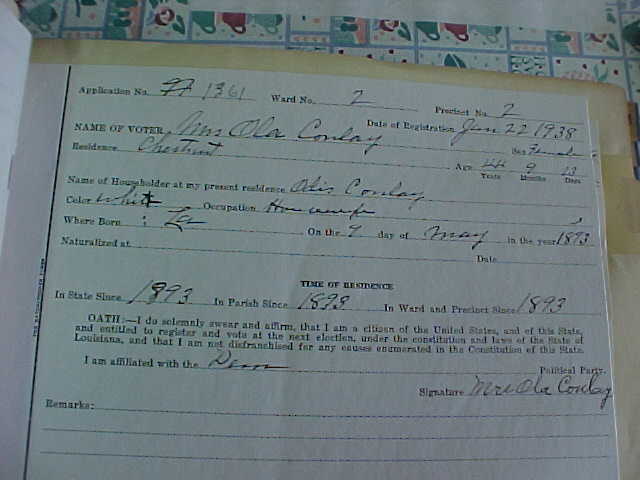 Application No. 1361 Ward No. 2 Precinct No. 2
Date of Registration Jan 22 1938
NAME OF VOTER Mrs Ola Conlay Sex Female
Residence Chestnut Age 44 9 13
Years Months Days
Name of Householder at my present residence Otis Conlay
Color White Occupation Housewife
Where Born La On the 9 day of May in the year 1893
Naturalized at Date
TIME OF RESIDENCE
In State Since 1893 In Parish Since 1893 In Ward and Precinct Since 1893
OATH:—I do solemnly swear and affirm, that I am a citizen of the United States, and of this State,
and entitled to register and vote at the next election, under the constitution and laws of the State of
Louisiana, and that I am not disfranchised for any causes enumerated in the Constitution of this State.
I am affiliated with the Dem Political Party.
Signature Mrs Ola Conlay
Remarks: